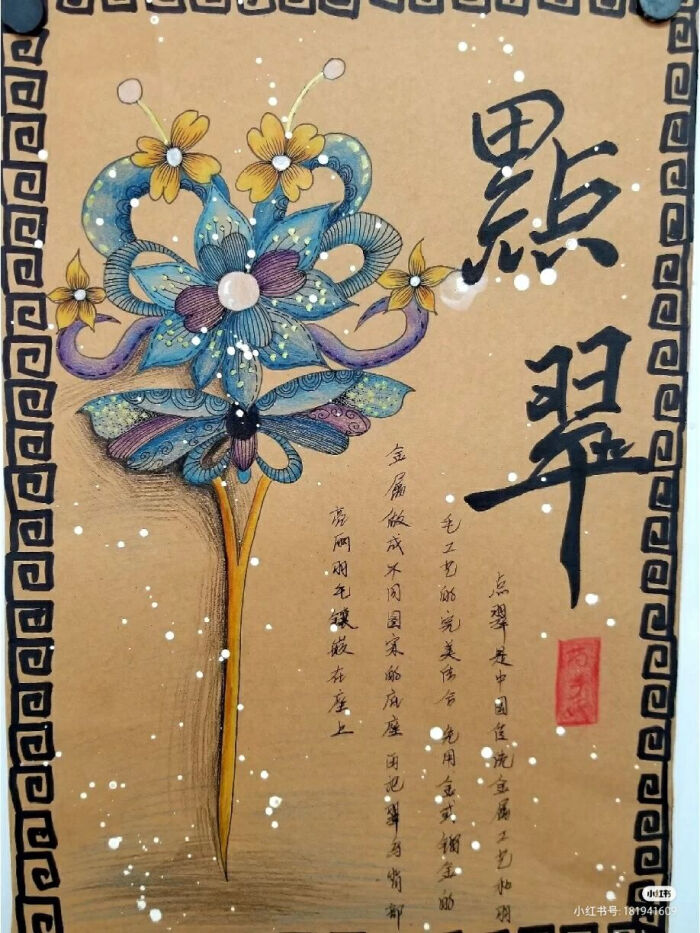 點翠
点翠是中国传统金属工艺和羽
毛工艺的完美结合 先用金或镏金的
金属做成不同图案的底座 再把翠鸟背部
亮丽羽毛镶嵌在座上
小红书
小红书号: 181941609